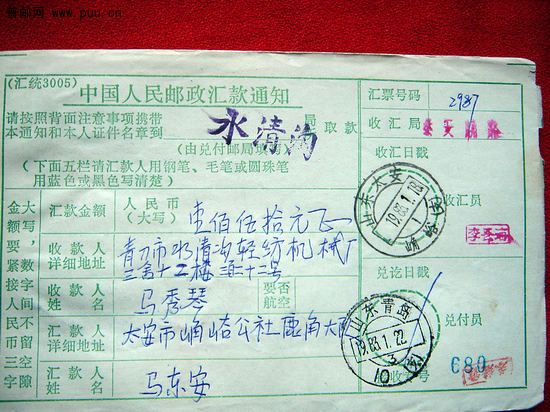 普邮网 www.puu.cn
(汇统3005)
中国人民邮政汇款通知
请按照背面注意事项携带
本通知和本人证件名章到
水清沟
局取款
(由兑付邮局填写)
(下面五栏请汇款人用钢笔、毛笔或圆珠笔
用蓝色或黑色写清楚)
汇票号码
2987
收汇局
收汇日戳
收汇员
兑讫日戳
兑付员
大写要紧接人民三字
金额数字间不留空隙
汇款金额
人民币
(大写)
壹佰伍拾元
收款人
详细地址
青刀市水清沟轻纺机械厂
收款人
姓名
马秀琴
要否
航空
汇款人
详细地址
公社鹿角大
汇款人
姓名
马东安
山东
1983.1.18
山东青岛
1983.1.22
3
10
号
680